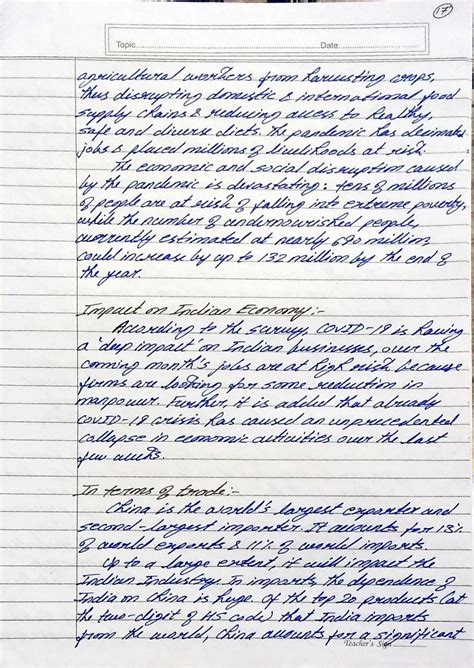 17
Topic
Date
agricultural workers from harvesting crops,
thus disrupting domestic & international food
supply chains & reducing access to healthy,
safe and diverse diets. The pandemic has decimated
jobs & placed millions of livelihoods at risk.
The economic and social disruption caused
by the pandemic is devastating: tens of millions
of people are at risk of falling into extreme poverty,
while the number of undernourished people,
currently estimated at nearly 690 million,
could increase by up to 132 million by the end of
the year.
Impact on Indian Economy:-
According to the survey, COVID-19 is having
a 'deep impact' on Indian businesses, over the
coming month's jobs are at high risk because
firms are looking for some reduction in
manpower. Further, it is added that already
COVID-19 crisis has caused an unprecedented
collapse in economic activities over the last
few weeks.
In terms of trade:-
China is the world's largest exporter and
second-largest importer. It accounts for 13%
of world exports & 11% of world imports.
Up to a large extent, it will impact the
Indian Industry. In imports, the dependence of
India on China is huge. Of the top 20 products (at
the two-digit of HS code) that India imports
from the world, China accounts for a significant
Teacher's Sign